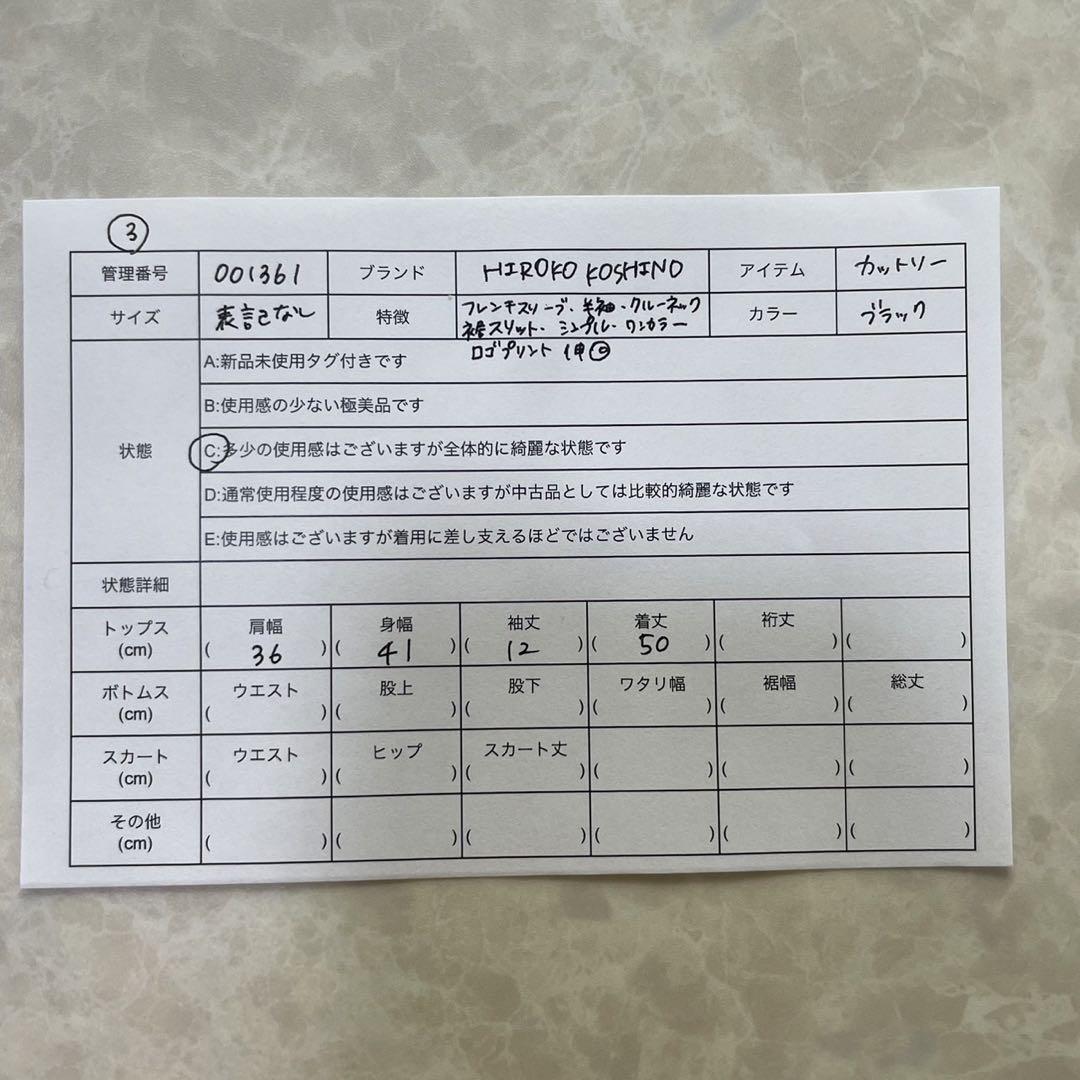 ③
管理番号 001361 ブランド HIROKO KOSHINO アイテム カットソー
サイズ 表記なし 特徴 フレンチスリーブ・半袖・クルーネック カラー ブラック
裾スリット・シンプル・ワンカラー
ロゴプリント 伸◎
状態
A:新品未使用タグ付きです
B:使用感の少ない極美品です
C:多少の使用感はございますが全体的に綺麗な状態です
D:通常使用程度の使用感はございますが中古品としては比較的綺麗な状態です
E:使用感はございますが着用に差し支えるほどではございません
状態詳細
トップス 肩幅 身幅 袖丈 着丈 裄丈
(cm) ( 36 ) ( 41 ) ( 12 ) ( 50 ) ( ) ( )
ボトムス ウエスト 股上 股下 ワタリ幅 裾幅 総丈
(cm) ( ) ( ) ( ) ( ) ( ) ( )
スカート ウエスト ヒップ スカート丈
(cm) ( ) ( ) ( ) ( ) ( ) ( )
その他
(cm) ( ) ( ) ( ) ( ) ( ) ( )